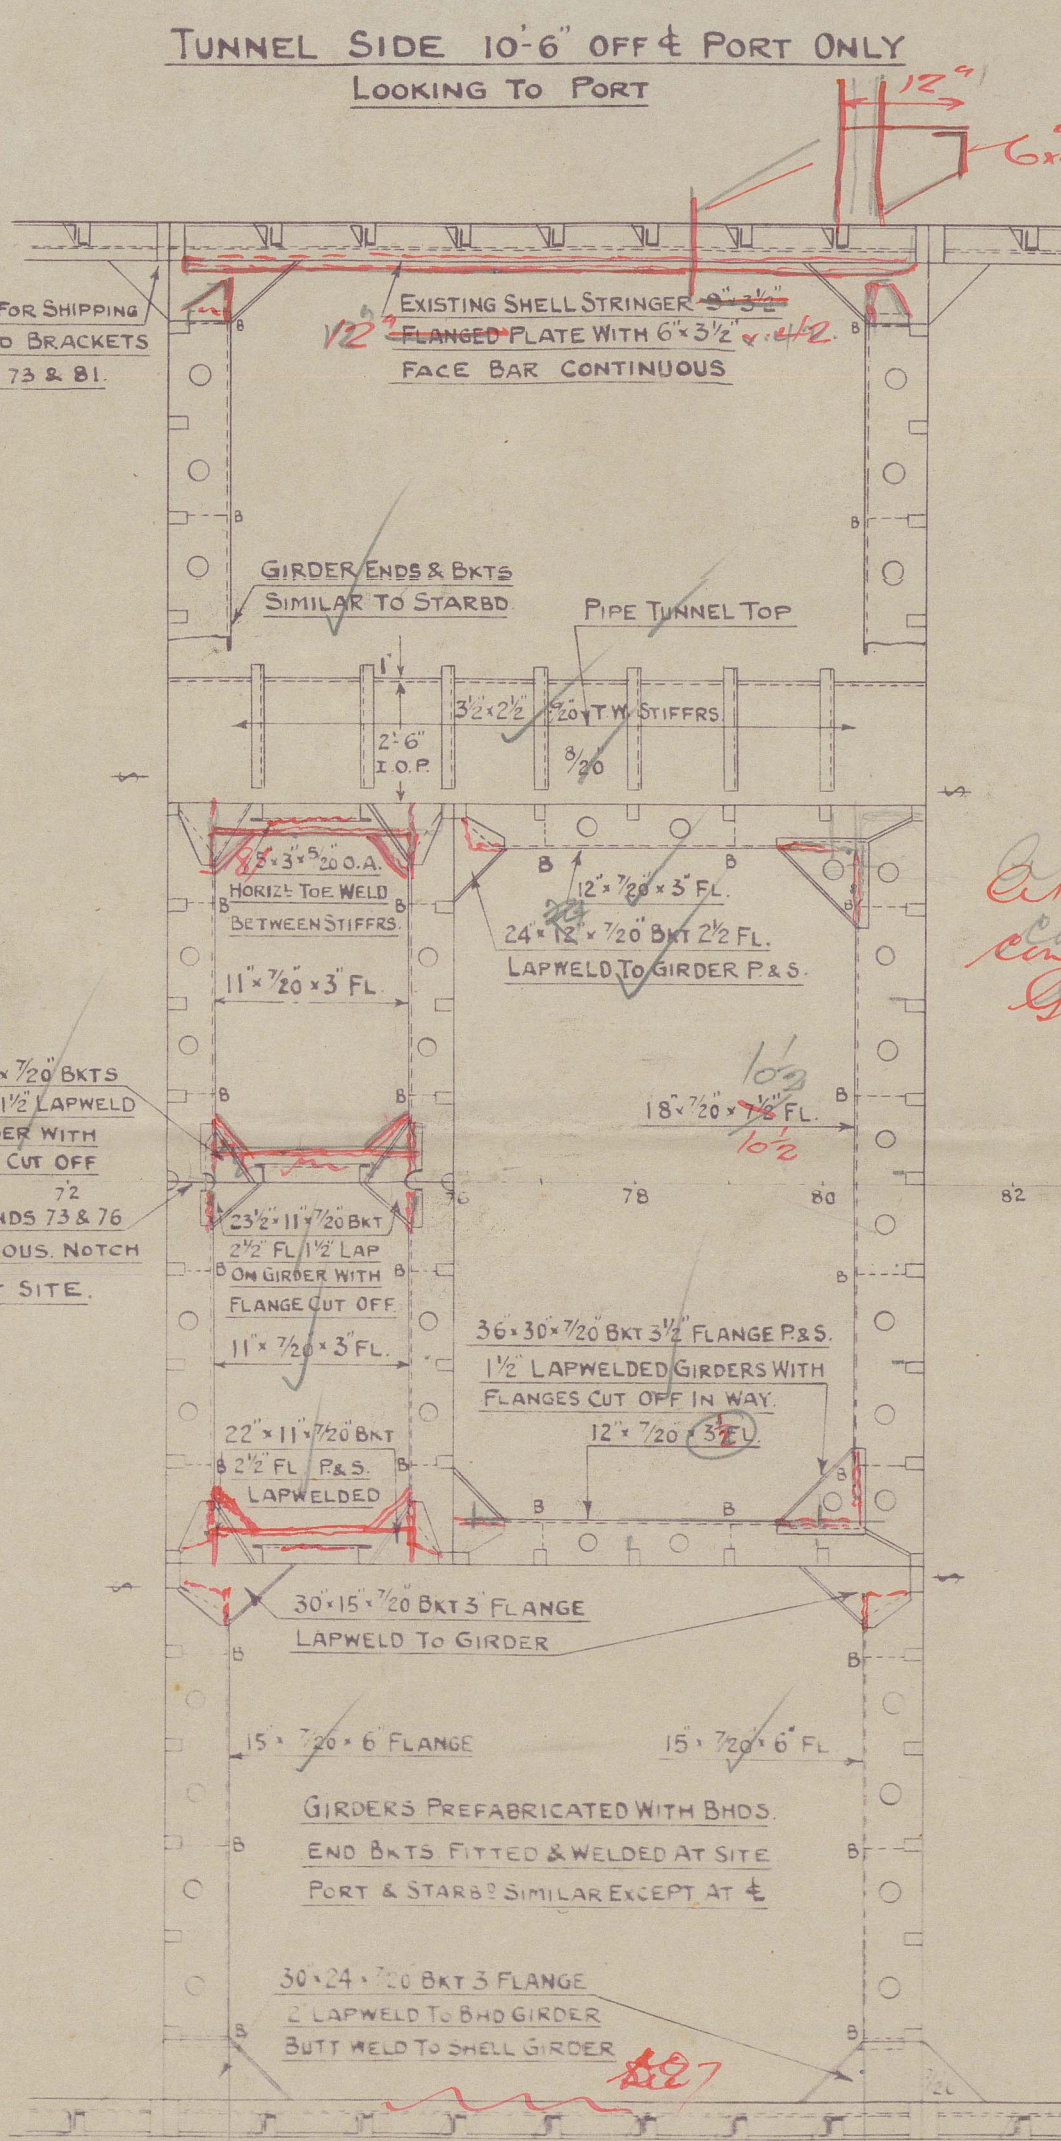 TUNNEL SIDE 10'-6" OFF ℄ PORT ONLY
LOOKING TO PORT
12"
FOR SHIPPING
BRACKETS
73 & 81.
EXISTING SHELL STRINGER 9"×3½"
12" FLANGED PLATE WITH 6"×3½"
FACE BAR CONTINUOUS
B
B
B
B
GIRDER ENDS & BKTS
SIMILAR TO STARBD.
PIPE TUNNEL TOP
1"
3½"×2½" T.W. STIFFRS.
2'-6"
I.O.P.
8/20"
×3"× O.A.
HORIZL TOE WELD
BETWEEN STIFFRS.
B
B
B
B
B
12"×7/20"×3" FL.
24"×12"×7/20" BKT 2½ FL.
LAPWELD TO GIRDER P.& S.
11"×7/20"×3" FL.
× 7/20" BKTS
1½" LAPWELD
WITH
CUT OFF
72
73 & 76
NOTCH
SITE.
B
B
B
10½
18"×7/20"×7½" FL.
10½
76
78
80
82
23½"×11"×7/20" BKT
2½" FL 1½" LAP
ON GIRDER WITH
FLANGE CUT OFF.
B
B
B
11"×7/20"×3" FL.
36×30×7/20" BKT 3½" FLANGE P.& S.
1½" LAPWELDED GIRDERS WITH
FLANGES CUT OFF IN WAY.
12"×7/20"×3½ FL.
22"×11"×7/20" BKT
2½" FL P.& S.
LAPWELDED
B
B
B
B
B
30"×15"×7/20" BKT 3" FLANGE
LAPWELD TO GIRDER
B
B
15"×7/20"×6" FLANGE
15"×7/20"×6" FL
GIRDERS PREFABRICATED WITH BHDS.
END BKTS. FITTED & WELDED AT SITE
PORT & STARBD SIMILAR EXCEPT AT ℄
B
B
30"×24"×7/20" BKT 3" FLANGE
2" LAPWELD TO BHD GIRDER
BUTT WELD TO SHELL GIRDER
B
B